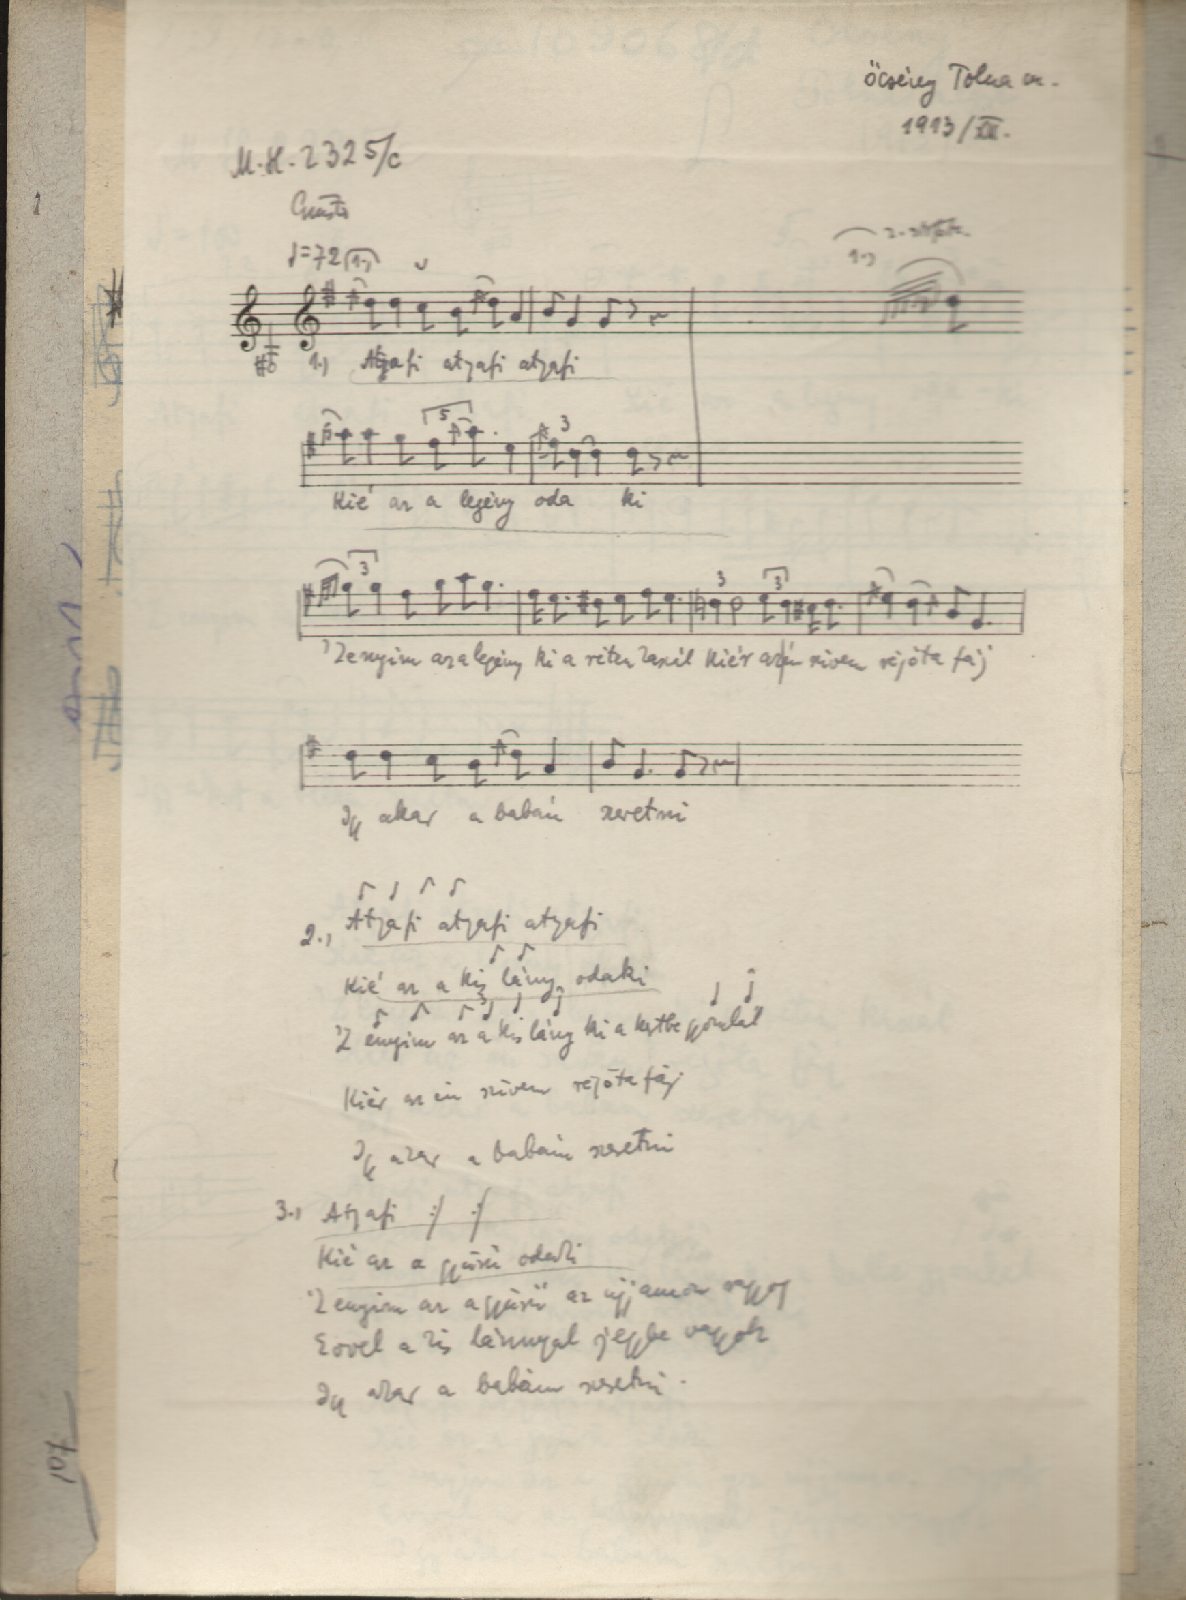 Öcsény Tolna m.
1913/XII.
M.H. 2325/c
Giusto
♩=72
1.)
2. 
1.)
1.) Atyafi atyafi atyafi
5
3
Kié az a legény oda ki
3
3
3
'Zenyim az a legény ki a réten kaszál Kiér az én szivem réjóta fáj
Igy akar a babám szeretni
2.) Atyafi atyafi atyafi
Kié az a kis lány odaki
'Z enyim az a kis lány ki a kertbe gyomlál
Kiér az én szivem réjóta fáj
Igy akar a babám szeretni
3.) Atyafi :/ :/
Kié az a gyürü odaki
'Z enyim az a gyürü az ujjamon ragyog
Evvel a kis lánnyal jegybe vagyok
Igy akar a babám szeretni.